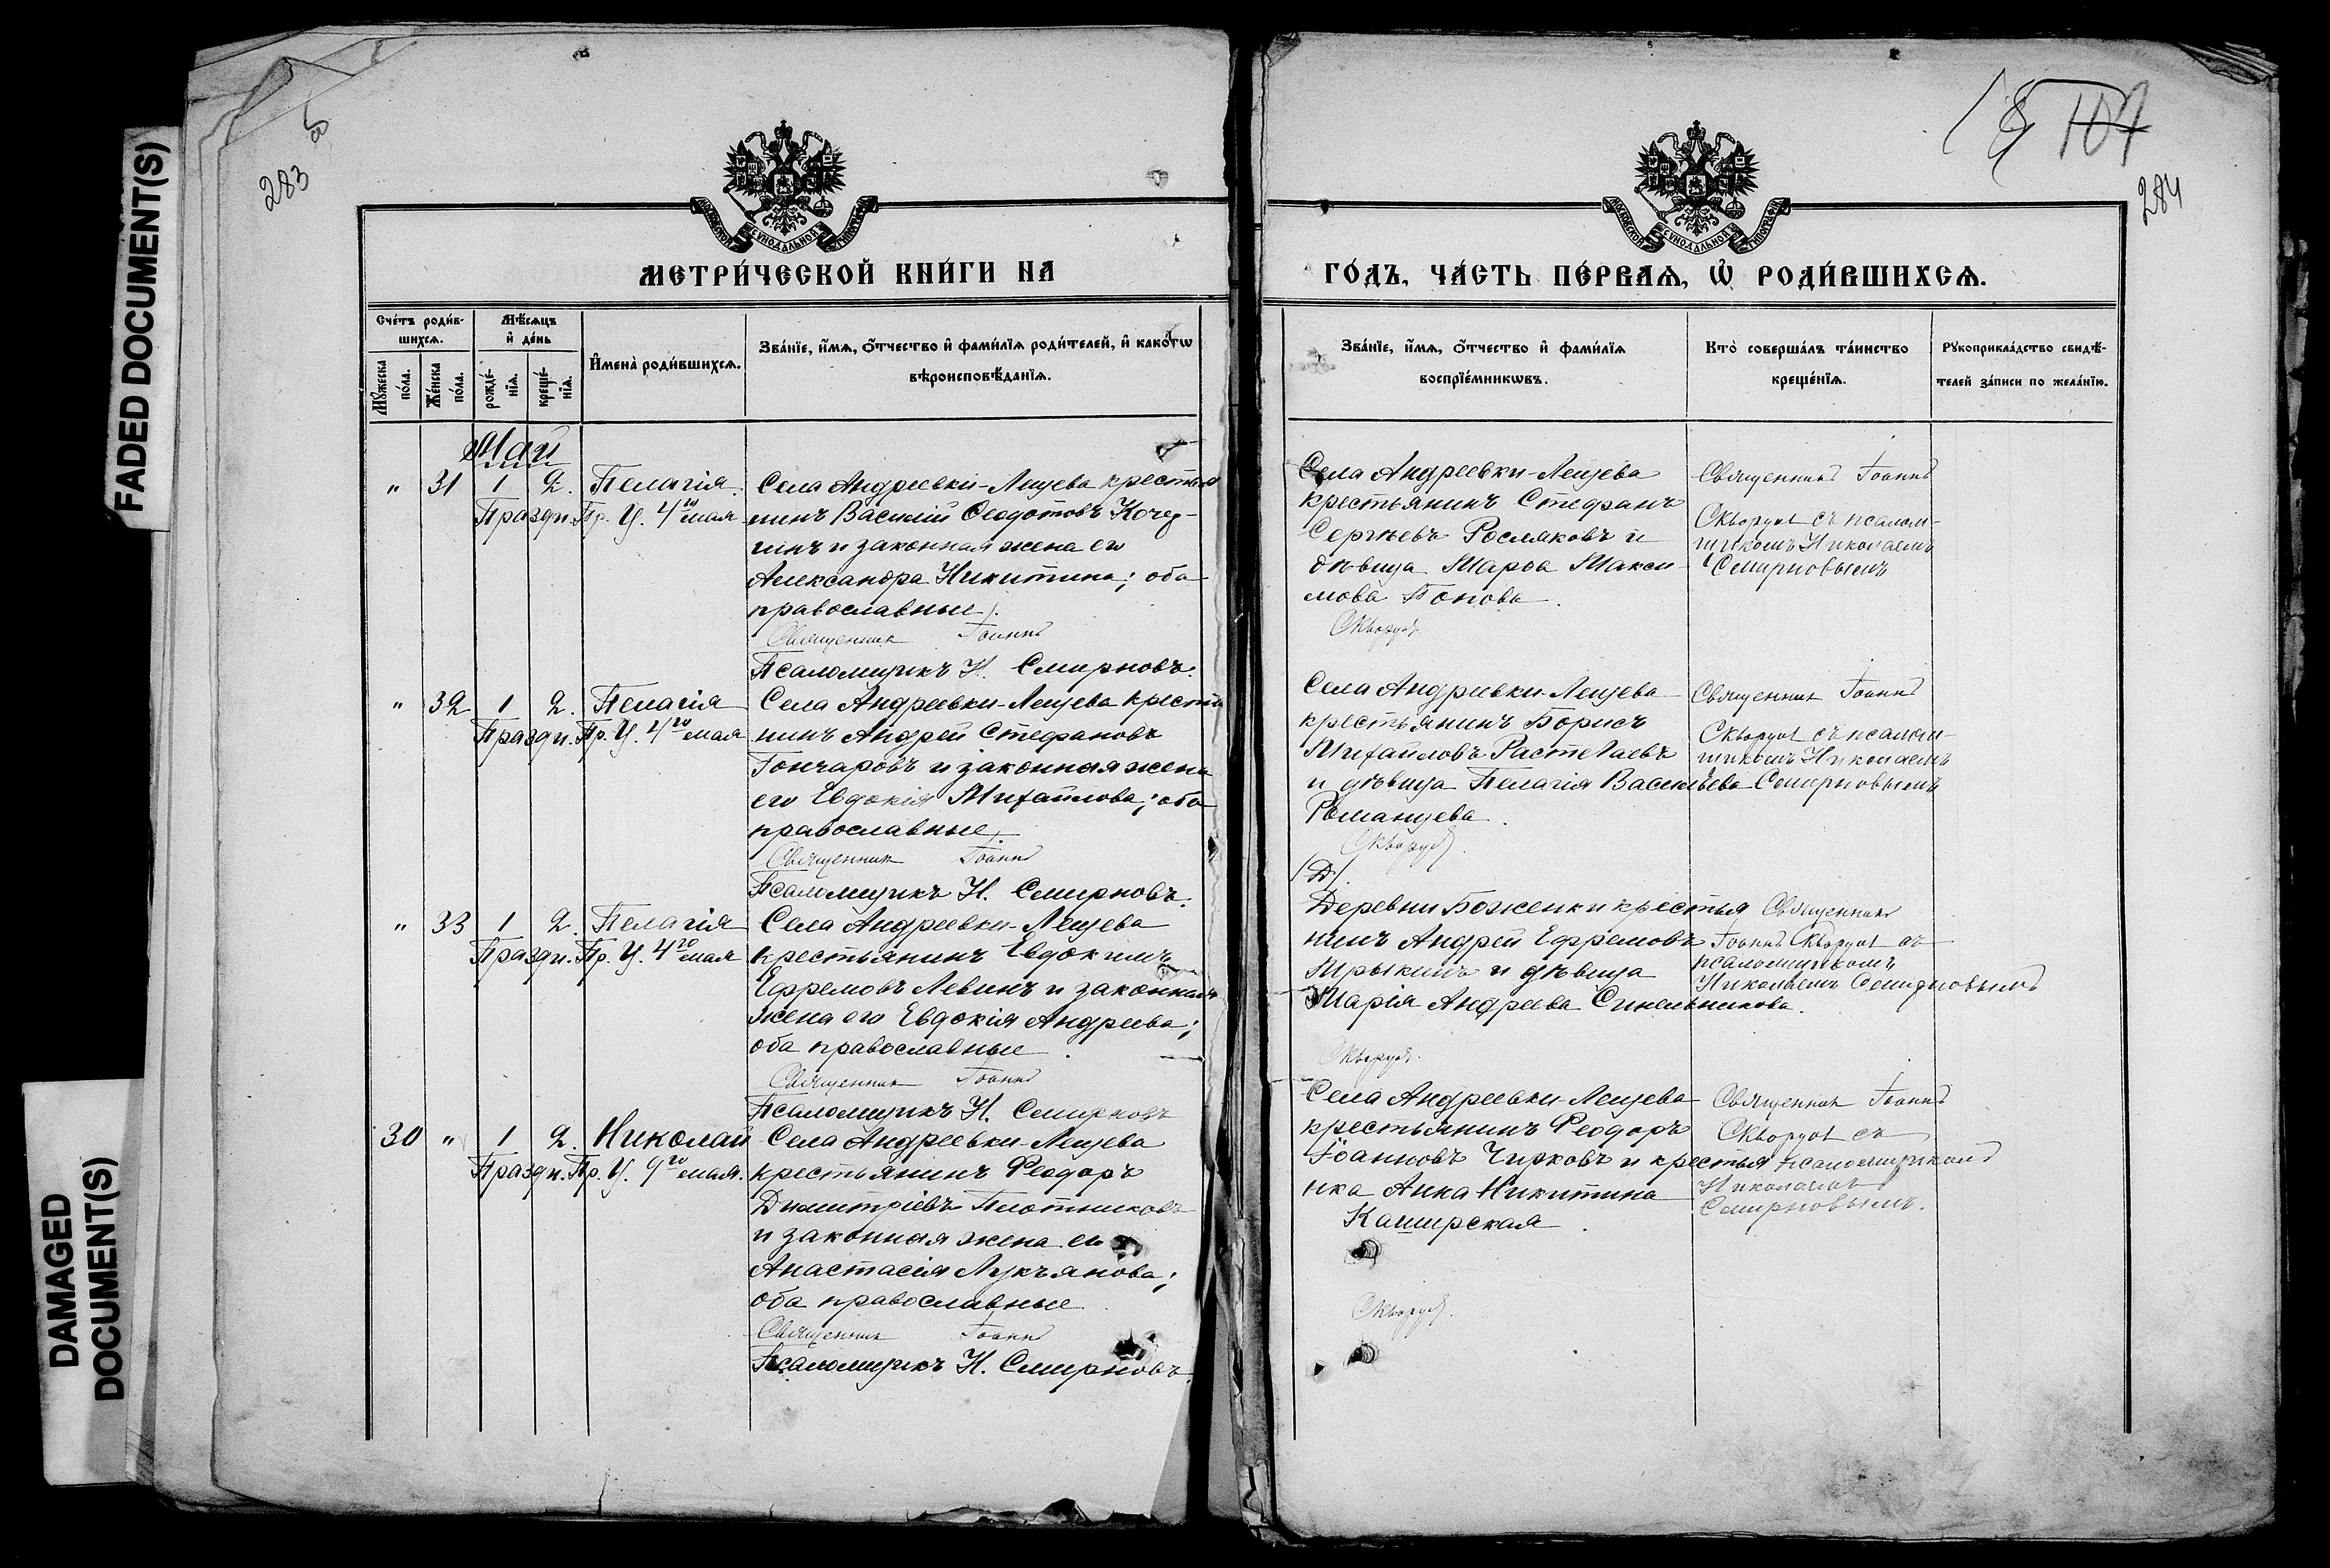 FADED DOCUMENT(S)
DAMAGED
DOCUMENT(S)
283
МЕТРИ́ЧЕСКОЙ КНИ́ГИ НА
Сче́тъ роди́в-
шихсѧ.
Мѣ́сѧцъ
и҆ де́нь
Мꙋ́жеска
по́ла.
Же́нска
по́ла.
рожде́-
нїѧ.
креще́-
нїѧ.
И҆мена̀ роди́вшихсѧ.
Зва́нїе, и҆́мѧ, ѻ҆́тчество и҆ фами́лїѧ роди́телей, и҆ какѡ́гѡ
вѣроисповѣ́данїѧ.
Май
" 31 1 2. Пелагія. Села Андреевки-Лещева крестья
Праздн. Пр. Ц. 4го мая нинъ Василій Ѳеодотовъ Кочер-
гинъ и законная жена его
Александра Никитина; оба
православные.
Священник Іоаннъ
Псаломщикъ Н. Смирновъ.
" 32 1 2. Пелагія Села Андреевки-Лещева крестья
Праздн. Пр. Ц. 4го мая нинъ Андрей Стефановъ
Гончаровъ и законная жена
его Евдокія Михайлова; оба
православные.
Священник Іоаннъ
Псаломщикъ Н. Смирновъ.
" 33 1 2. Пелагія Села Андреевки-Лещева
Праздн. Пр. Ц. 4го мая крестьянинъ Евдокимъ
Ефремовъ Левинъ и законная
жена его Евдокія Андреева;
оба православные.
Священник Іоаннъ
Псаломщикъ Н. Смирновъ
30 " 1 2. Николай Села Андреевки-Лещева
Праздн. Пр. Ц. 9го мая. крестьянинъ Ѳеодоръ
Димитріевъ Плотниковъ
и законная жена его
Анастасія Лукъянова;
оба православные.
Священник Іоаннъ
Псаломщикъ Н. Смирновъ.
107
284
ГО́ДЪ, ЧА́СТЬ ПЕ́РВАѦ, Ѽ РОДИ́ВШИХСѦ.
Зва́нїе, и҆́мѧ, ѻ҆́тчество и҆ фами́лїѧ
воспрїе́мникѡвъ.
Кто̀ соверша́лъ та́инство
креще́нїѧ.
Рꙋкоприкла́дство свидѣ́-
телей за́писи по жела́нїю.
Села Андреевки-Лещева
крестьянинъ Стефанъ
Сергѣевъ Росляковъ и
дѣвица Марѳа Макси-
мова Попова.
Скворцов
Священникъ Іоаннъ
Скворцов съ псалом-
щикомъ Николаемъ
Смирновымъ
Села Андреевки-Лещева
крестьянинъ Борисъ
Михайловъ Растегаевъ
и дѣвица Пелагія Васильева
Романцева.
Скворцов.
Священник Іоаннъ
Скворцов съ псалом-
щикомъ Николаемъ
Смирновымъ
/Д/.
Деревни Боженки крестья
нинъ Андрей Ефремовъ
и дѣвица
Марія Андреева Синельникова.
Скворцов.
Священникъ
Іоаннъ Скворцов съ
псаломщикомъ
Николаемъ Смирновымъ
Села Андреевки-Лещева
крестьянинъ Ѳеодоръ
Іоанновъ Чирковъ и крестья
нка Анна Никитина
Каширская.
Скворцов.
Священник Іоаннъ
Скворцов съ
псаломщикомъ
Николаемъ
Смирновымъ.